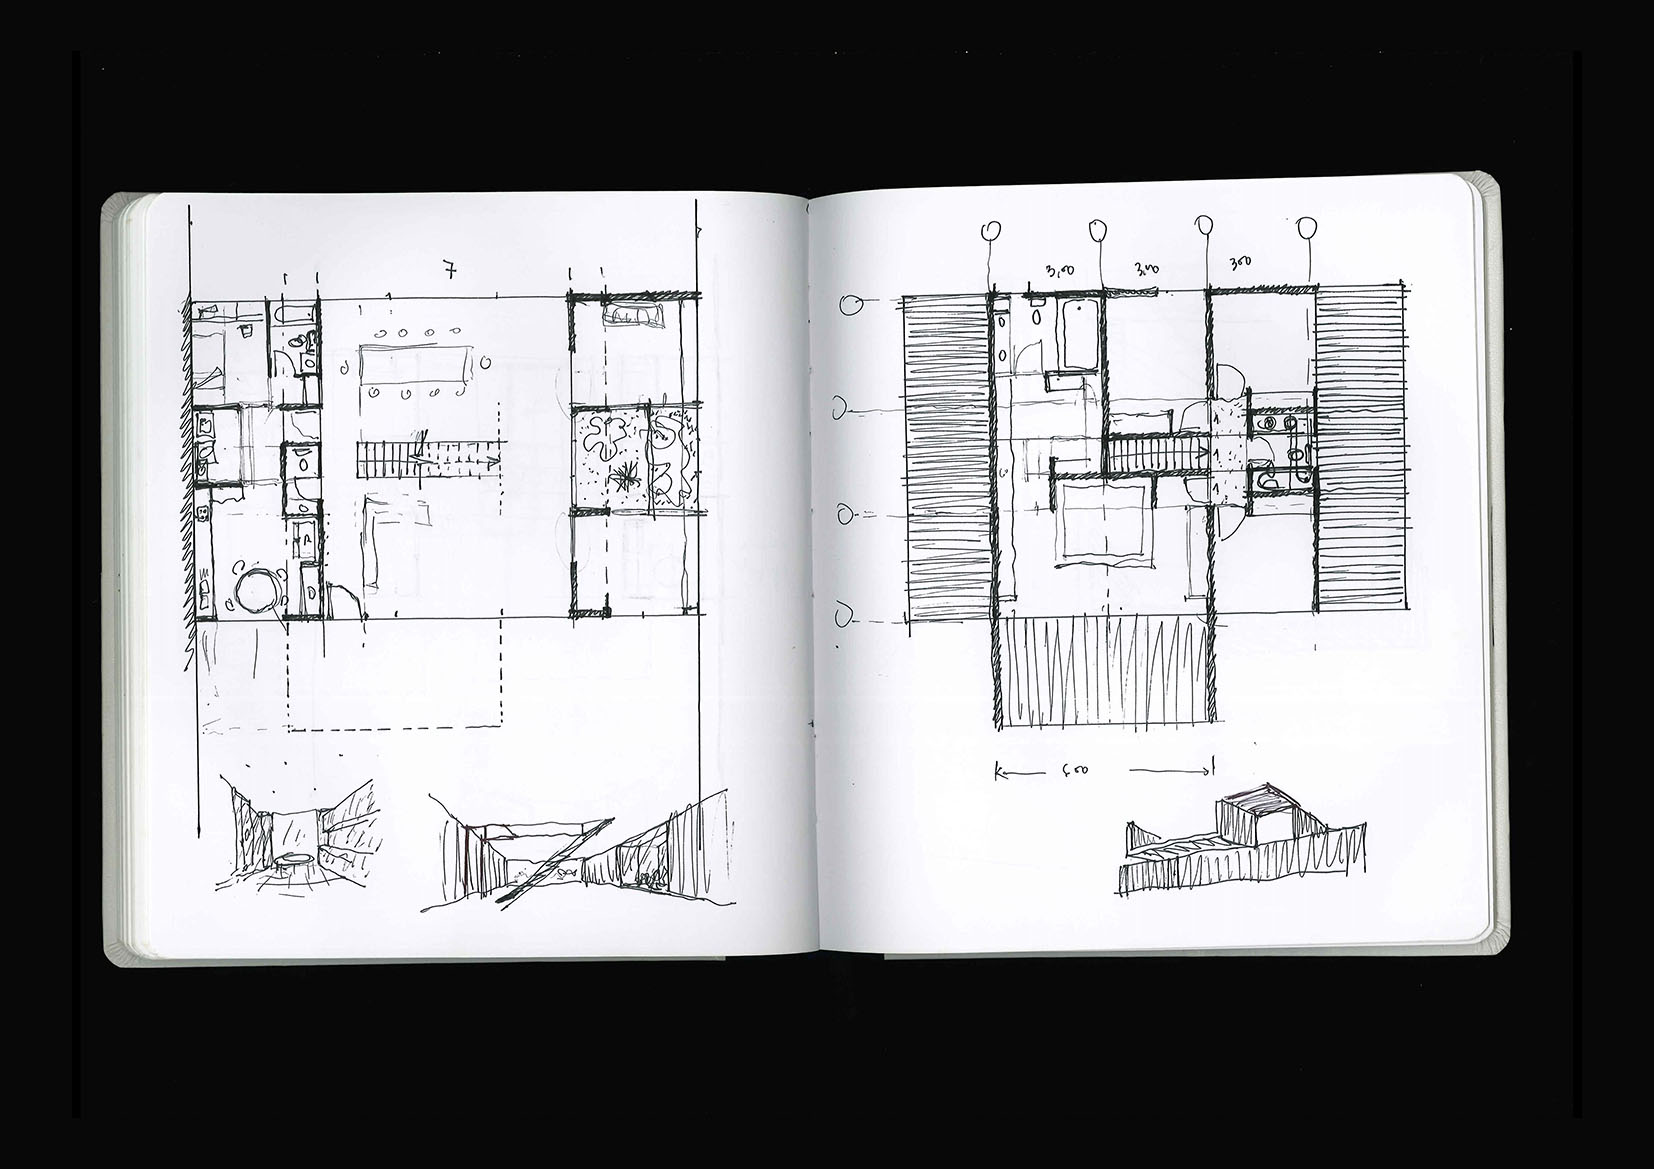 7
3,00 3,00 3,00
6,00